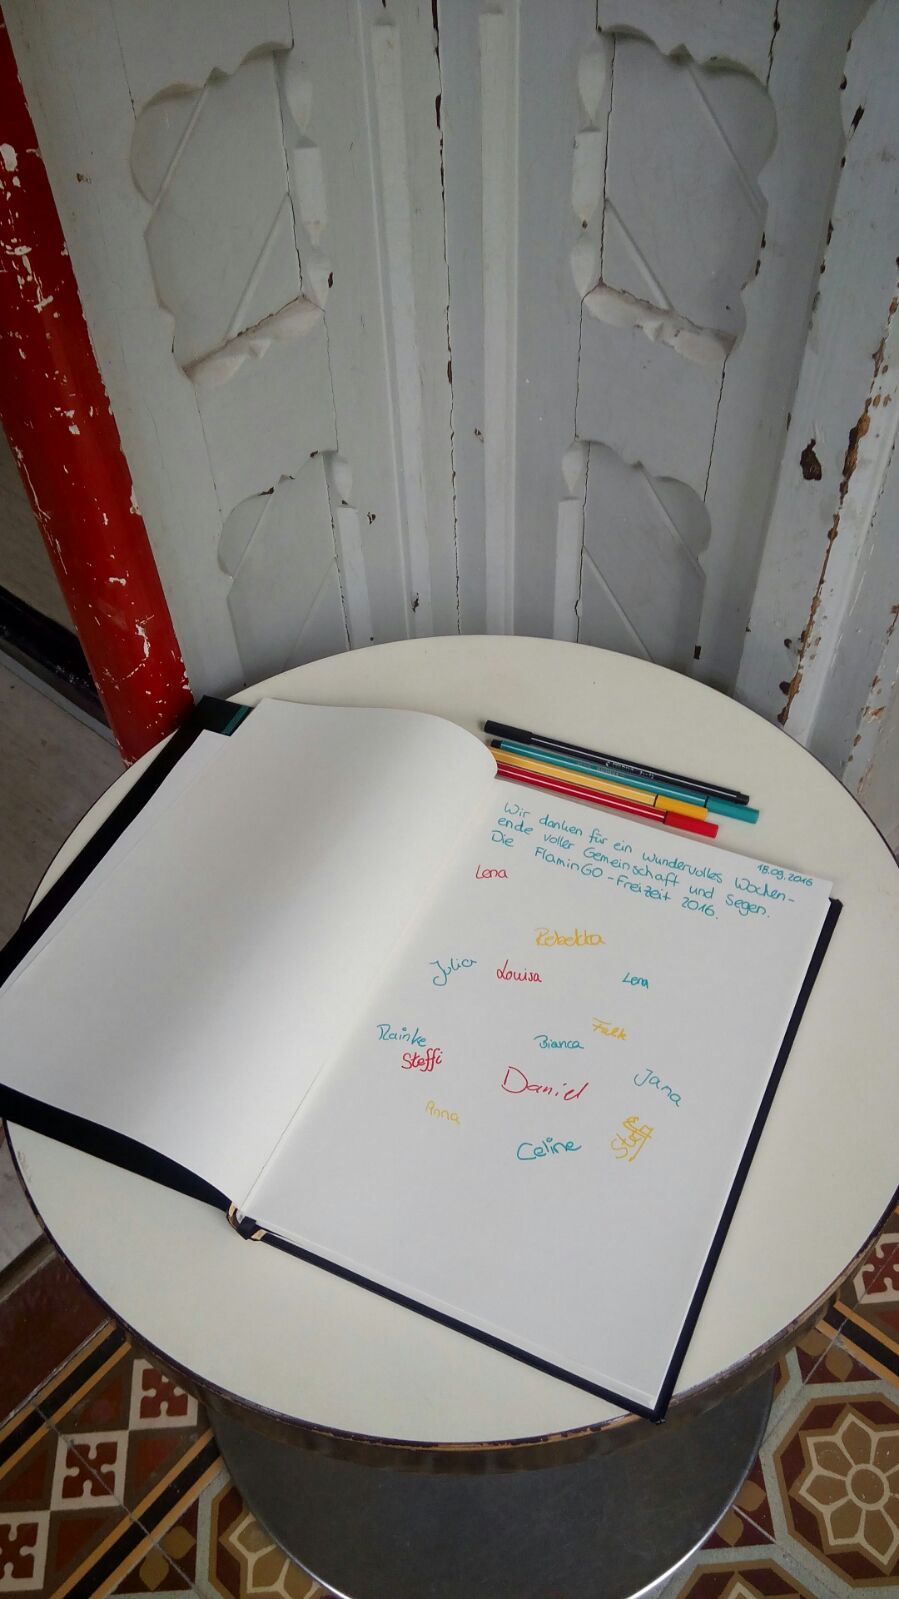 18.09.2016
Wir danken für ein wundervolles Wochen-
ende voller Gemeinschaft und Segen.
Die FlaminGO-Freizeit 2016.
Lena
Rebekka
Julia Louisa Lena
Falk
Rainke Bianca
Steffi
Daniel Jana
Anna
Celine